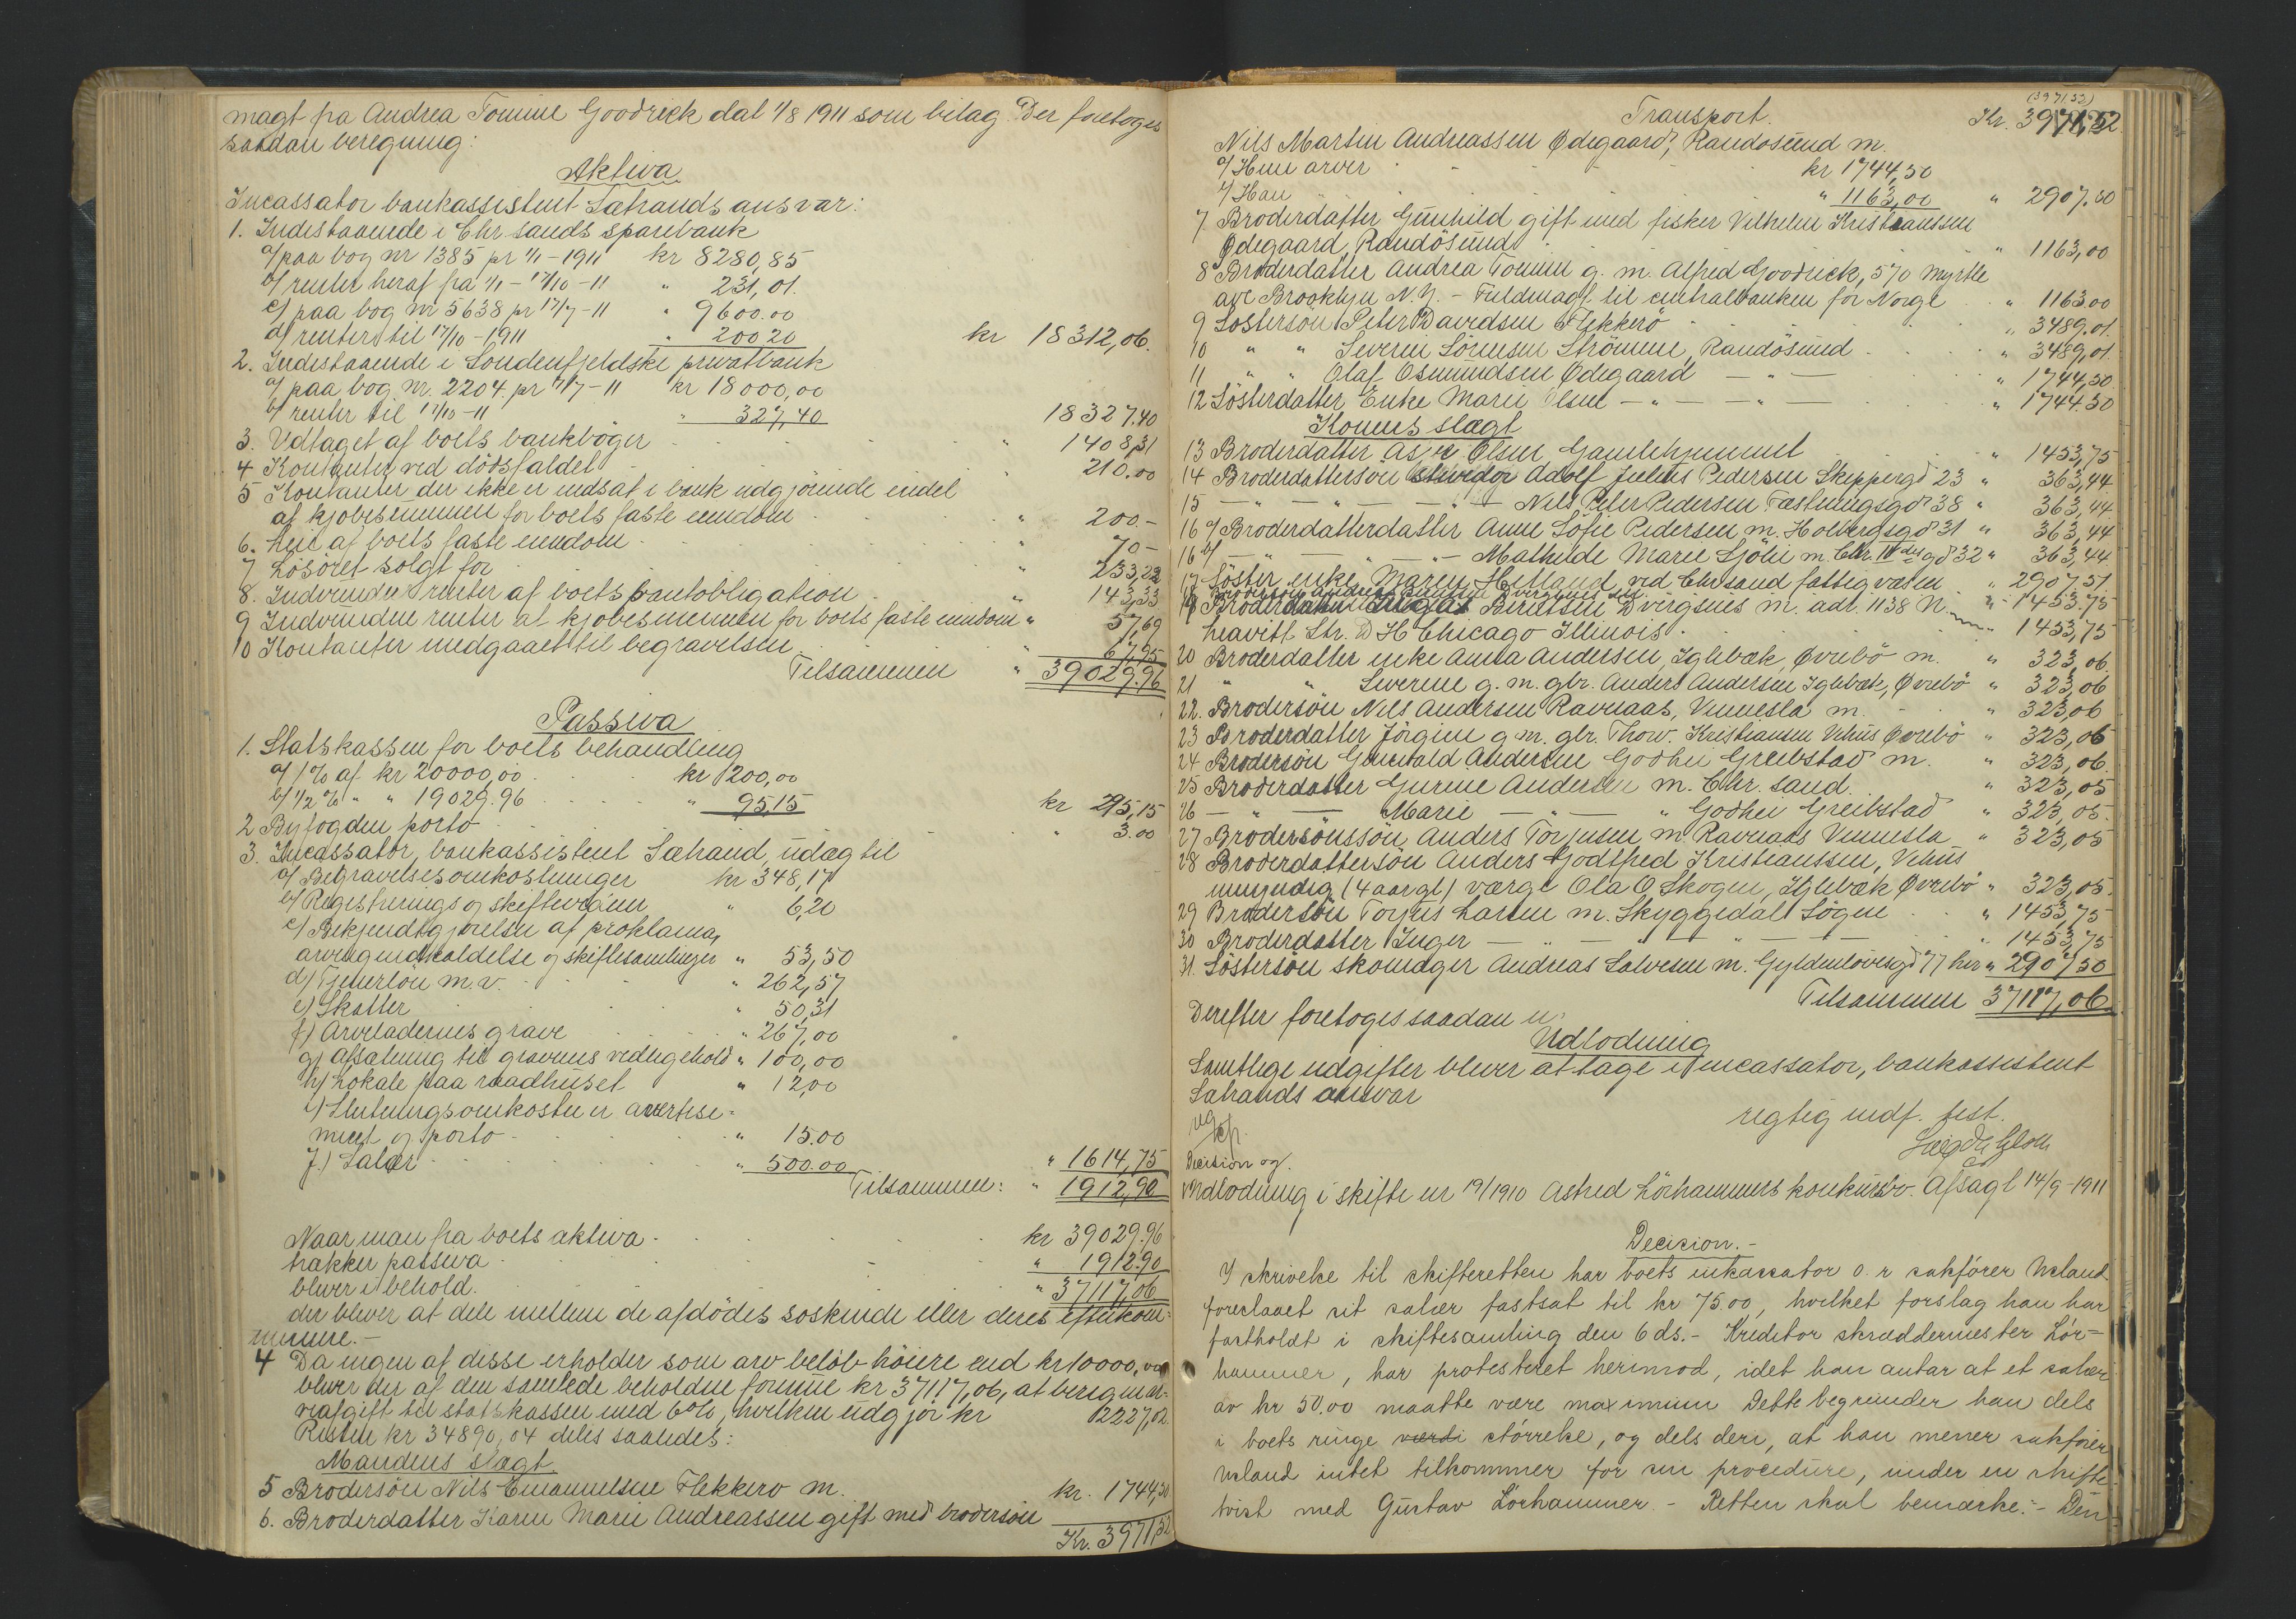 magt fra Andrea Tomine Goodrick dat 1/8 1911 som bilag Der foretoges
saadan beregning:
Aktiva.
Incassator bankassistent Sætrands ansvar:
1. Indestaaende i Chr.sands sparebank
a/ paa bog nr 1385 pr 1/1-1911 kr 8280,85
b/ renter heraf fra 1/1-17/10-11 " 231,01.
c/ paa bog nr 5638 pr 17/7-11 " 9600.00
d/ renter til 17/10-1911 " 200 20 kr 18312,06.
2. Indestaaende i Søndenfjeldske privatbank
a/ paa bog nr. 2204. pr 17/7-11 kr 18000,00
b/ renter til 17/10-11 " 327,40 18327.40
3. Udtaget af boets bankbøger " 1408,31
4 Kontanter ved dødsfaldet " 210.00
5 Kontanter der ikke er indsat i bank udgjørende endel
af kjøbesummen for boets faste eiendom " 200.-
6. Leie af boets faste eiendom " 70-
7 Løsøret solgt for " 233,22
8. Indvundne renter af boets pantobligation " 143,33
9 Indvundne renter af kjøbesummen for boets faste eiendom " 57,69
10 Kontanter medgaaet til begravelsen " 67,95
Tilsammen " 39029.96
Passiva
1. Statskassen for boets behandling
a/ 1% af kr 20000,00 kr 200,00
b/ 1/2 % " " 19029.96 " 95,15 kr 295,15
2 Byfogden porto " 3.00
3. Incassator, bankassistent Sætrand, udlæg til
a/ Begravelsesomkostninger kr 348,17
b/ Registrerings og skiftevæsen " 6,20
c/ Bekjendtgjørelse af proklama,
arvingindkaldelse og skiftesamlinger " 53,50
d/ Tjenerløn m.v. " 262,57
e/ Skatter " 50,31
f/ Arveladernes grave " 267,00
g/ Afsætning til gravenes vedligehold " 100,00
h/ Lokale paa raadhuset " 12,00
i/ Slutningsomkostninger avertisse-
ment og porto " 15.00
j/ Salær " 500.00 " 1614,75
Tilsammen: " 1912,90
Naar man fra boets aktiva kr 39029.96
trækker passiva " 1912.90
bliver i behold. " 37117,06
der bliver at dele mellem de afdødes søskende eller deres efterkom-
mere.-
4 Da ingen af disse erholder som arv beløb høiere end kr 10000,00
bliver der af den samlede beholdne formue kr 37117,06, at beregne ar-
veafgift til statskassen med 6%, hvilken udgjør kr 2227,02.
Resten kr 34890,04 deles saaledes:
Mandens slægt
5 Brodersøn Nils Emanuelsen Flekkerø m. kr. 1744,50
6. Broderdatter Karen Marie Andreassen gift med brodersøn
Kr. 3971,52
Transport. (3971.52)
Kr. 3971,52
Nils Martin Andreassen Ødegaard, Randøsund m.
a/ Hun arver kr 1744,50
b/ Han " 1163,00 " 2907.50
7 Broderdatter Gunhild gift med fisker Vilhelm Kristiansen
Ødegaard, Randøsund " 1163,00
8 Broderdatter Andrea Tomine g. m. Alfred Goodrick, 570 Myrtle
ave Brooklyn N.Y. - Fuldmagt til centralbanken for Norge " 1163 00
9 Søstersøn Peter Davidsen Flekkerø " 3489.01.
10 " " Severin Sørensen Strømme, Randøsund " 3489,01.
11 " " Olaf Osmundsen Ødegaard — " — " 1744,50
12 Søsterdatter Enke Marie Olsen — " — — " — " 1744.50
Konens slægt
13 Broderdatter Asje Olsen Gamlehjemmet " 1453,75
14 Broderdattersøn Adolf Julius Pedersen Skippergd 23 " 363,44
15 — " — — " — Nils Peter Pedersen Fæstningsgd 38 " 363,44
16 a/ Broderdatterdatter Anne Sofie Pedersen m. Holbergsgd 31 " 363,44
16 b/ — " — — " — Mathilde Marie Sjølie m. Chr. IV des gd 32 " 363,44
17 Søster enke Maren Hetland, ved Chrsand fattigvæsen " 2907.51
18 Brodersøn Andreas Berntsen Dvergsnes " 1453.75
19 Berntsen Dvergsnes m. adr. 1138 N.
Leavitt Str. Chicago Illinois. " 1453,75
20 Broderdatter enke Anna Andersen, Iglebæk, Øvrebø m. " 323,06.
21 " " Severine g. m. gbr. Anders Andersen Iglebæk, Øvrebø " 323,06
22. Brodersøn Nils Andersen Ravnaas, Vennesla m. " 323,06
23 Broderdatter Jørgine g m. gbr. Thorv. Kristiansen Vehus Øvrebø " 323,06
24 Brodersøn Gunvald Andersen Godhei Greibstad m. " 323,06.
25 Broderdatter Gurine Andersen m. Chr. sand. " 323,05
26 — " — Marie — " — " Godhei Greibstad " 323,05.
27 Brodersønssøn Anders Torjusen m. Ravnaas Vennesla " 323,05
28 Broderdattersøn Anders Godtfred Kristianssen, Vehus
umyndig (4 aar gl) værge Ola O. Skogen, Iglebæk Øvrebø " 323,05.
29 Brodersøn Torjus Larsen m. Skyggedal Søgne " 1453,75
30 Broderdatter Inger — " — " — " — " 1453,75
31. Søstersøn skomager Andreas Salvesen m. Gyldenløvesgd 77 her " 2907 50
Tilsammen 37117,06
Derefter foretoges saadan
Udlodning
Samtlige udgifter bliver at tage i incassator, bankassistent
Sætrands ansvar
rigtig indf. test.
Decision og
Udlodning i skifte nr 19/1910 Astred Lørhammers konkursbo. Afsagt 14/9-1911
Decision.-
I skrivelse til skifteretten har boets inkassator o. r sakfører Uland
foreslaaet sit salær fastsat til kr 75.00, hvilket forslag han har
fastholdt i skiftesamling den 6 ds.- Kreditor skreddermester Lór-
hammer, har protesteret herimod, idet han antar at et salær
av kr 50.00 maatte være maximum Dette begrunder han dels
i boets ringe værdi størrelse, og dels deri, at han mener sakfører
Uland intet tilkommer for sin procedure, under en skifte-
tvist med Gustav Lórhammer - Retten skal bemærke:- Den